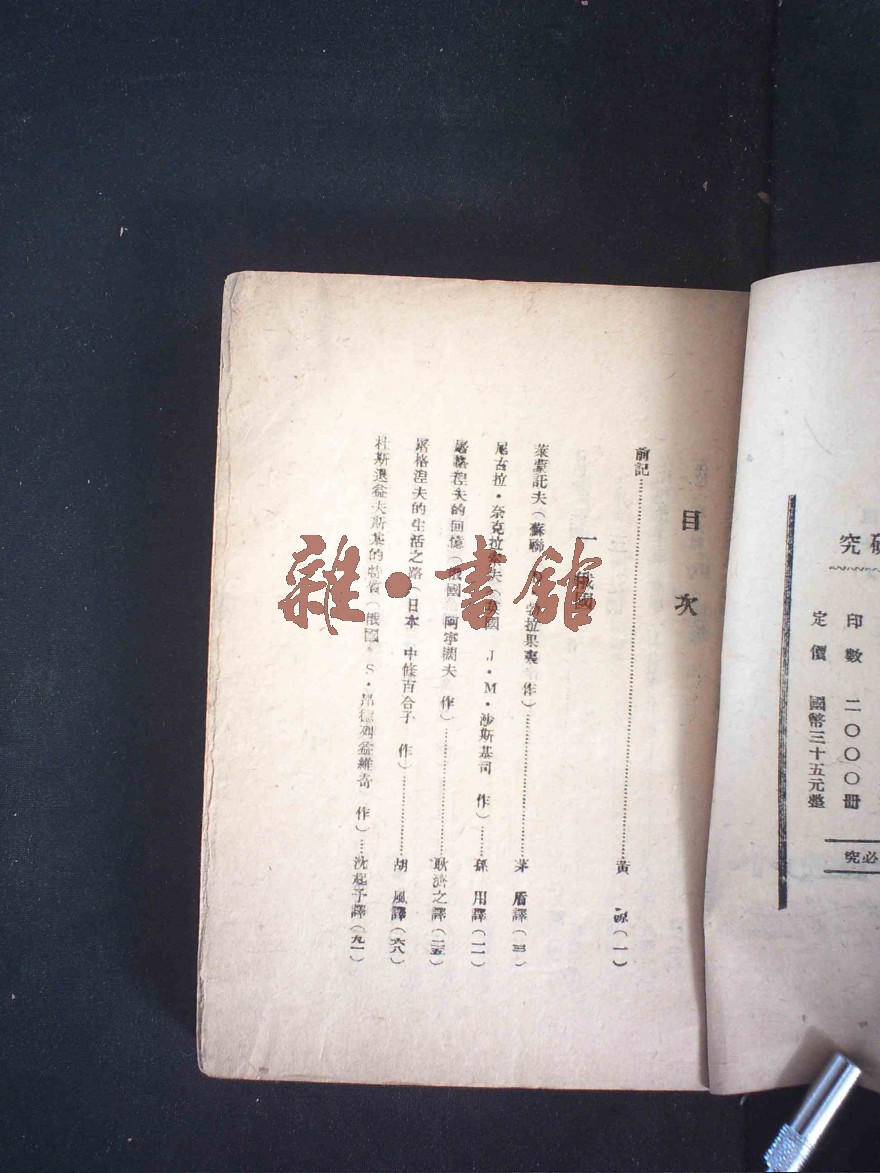 究
印數 二〇〇〇冊
定價 國幣三十五元整
必究
目次
前記……黃 源(一)
一 俄國
萊蒙託夫(蘇聯 勃拉果夷 作)……茅 盾譯(三)
尼古拉·奈克拉索夫(英國 J·M·沙斯基司 作)……孫 用譯(一一)
屠格涅夫的回憶(俄國 阿寧闊夫 作)……耿濟之譯(二五)
屠格涅夫的生活之路(日本 中條百合子 作)……胡 風譯(六八)
杜斯退益夫斯基的特質(俄國 S· 維奇 作)……沈起予譯(九一)
雜·書館